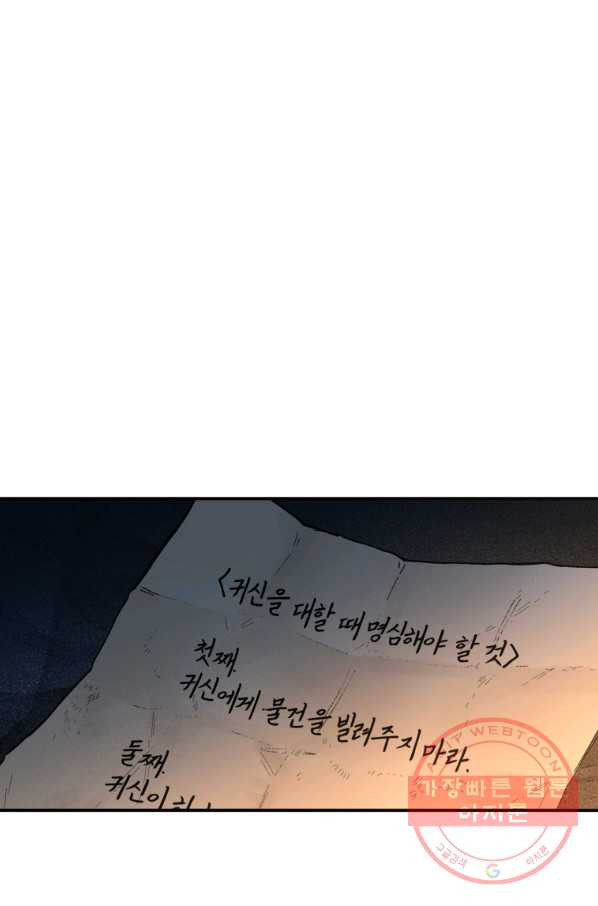 <귀신을 대할 때 명심해야 할 것>
첫째.
귀신에게 물건을 빌려주지마라.
둘째.
귀신이
WEBTOON
가장빠른 웹툰
아지툰
구글검색 G 아지툰